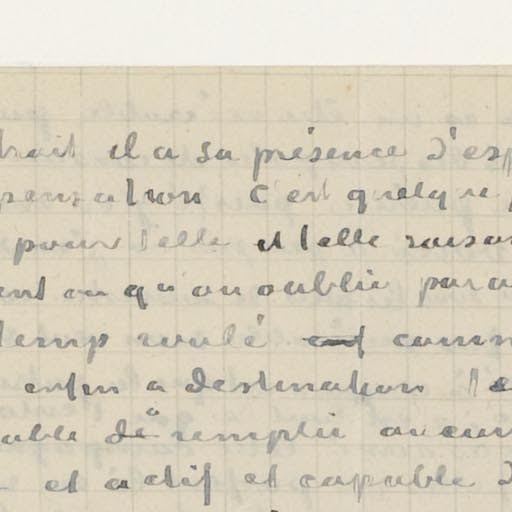 trait il a sa présence d'esp
pensation c'est quelque
pour telle et telle raison
ent ou qu'on oublie par
temp voulé comm
enfin a destination
able de remplir aucun
et actif et capable d